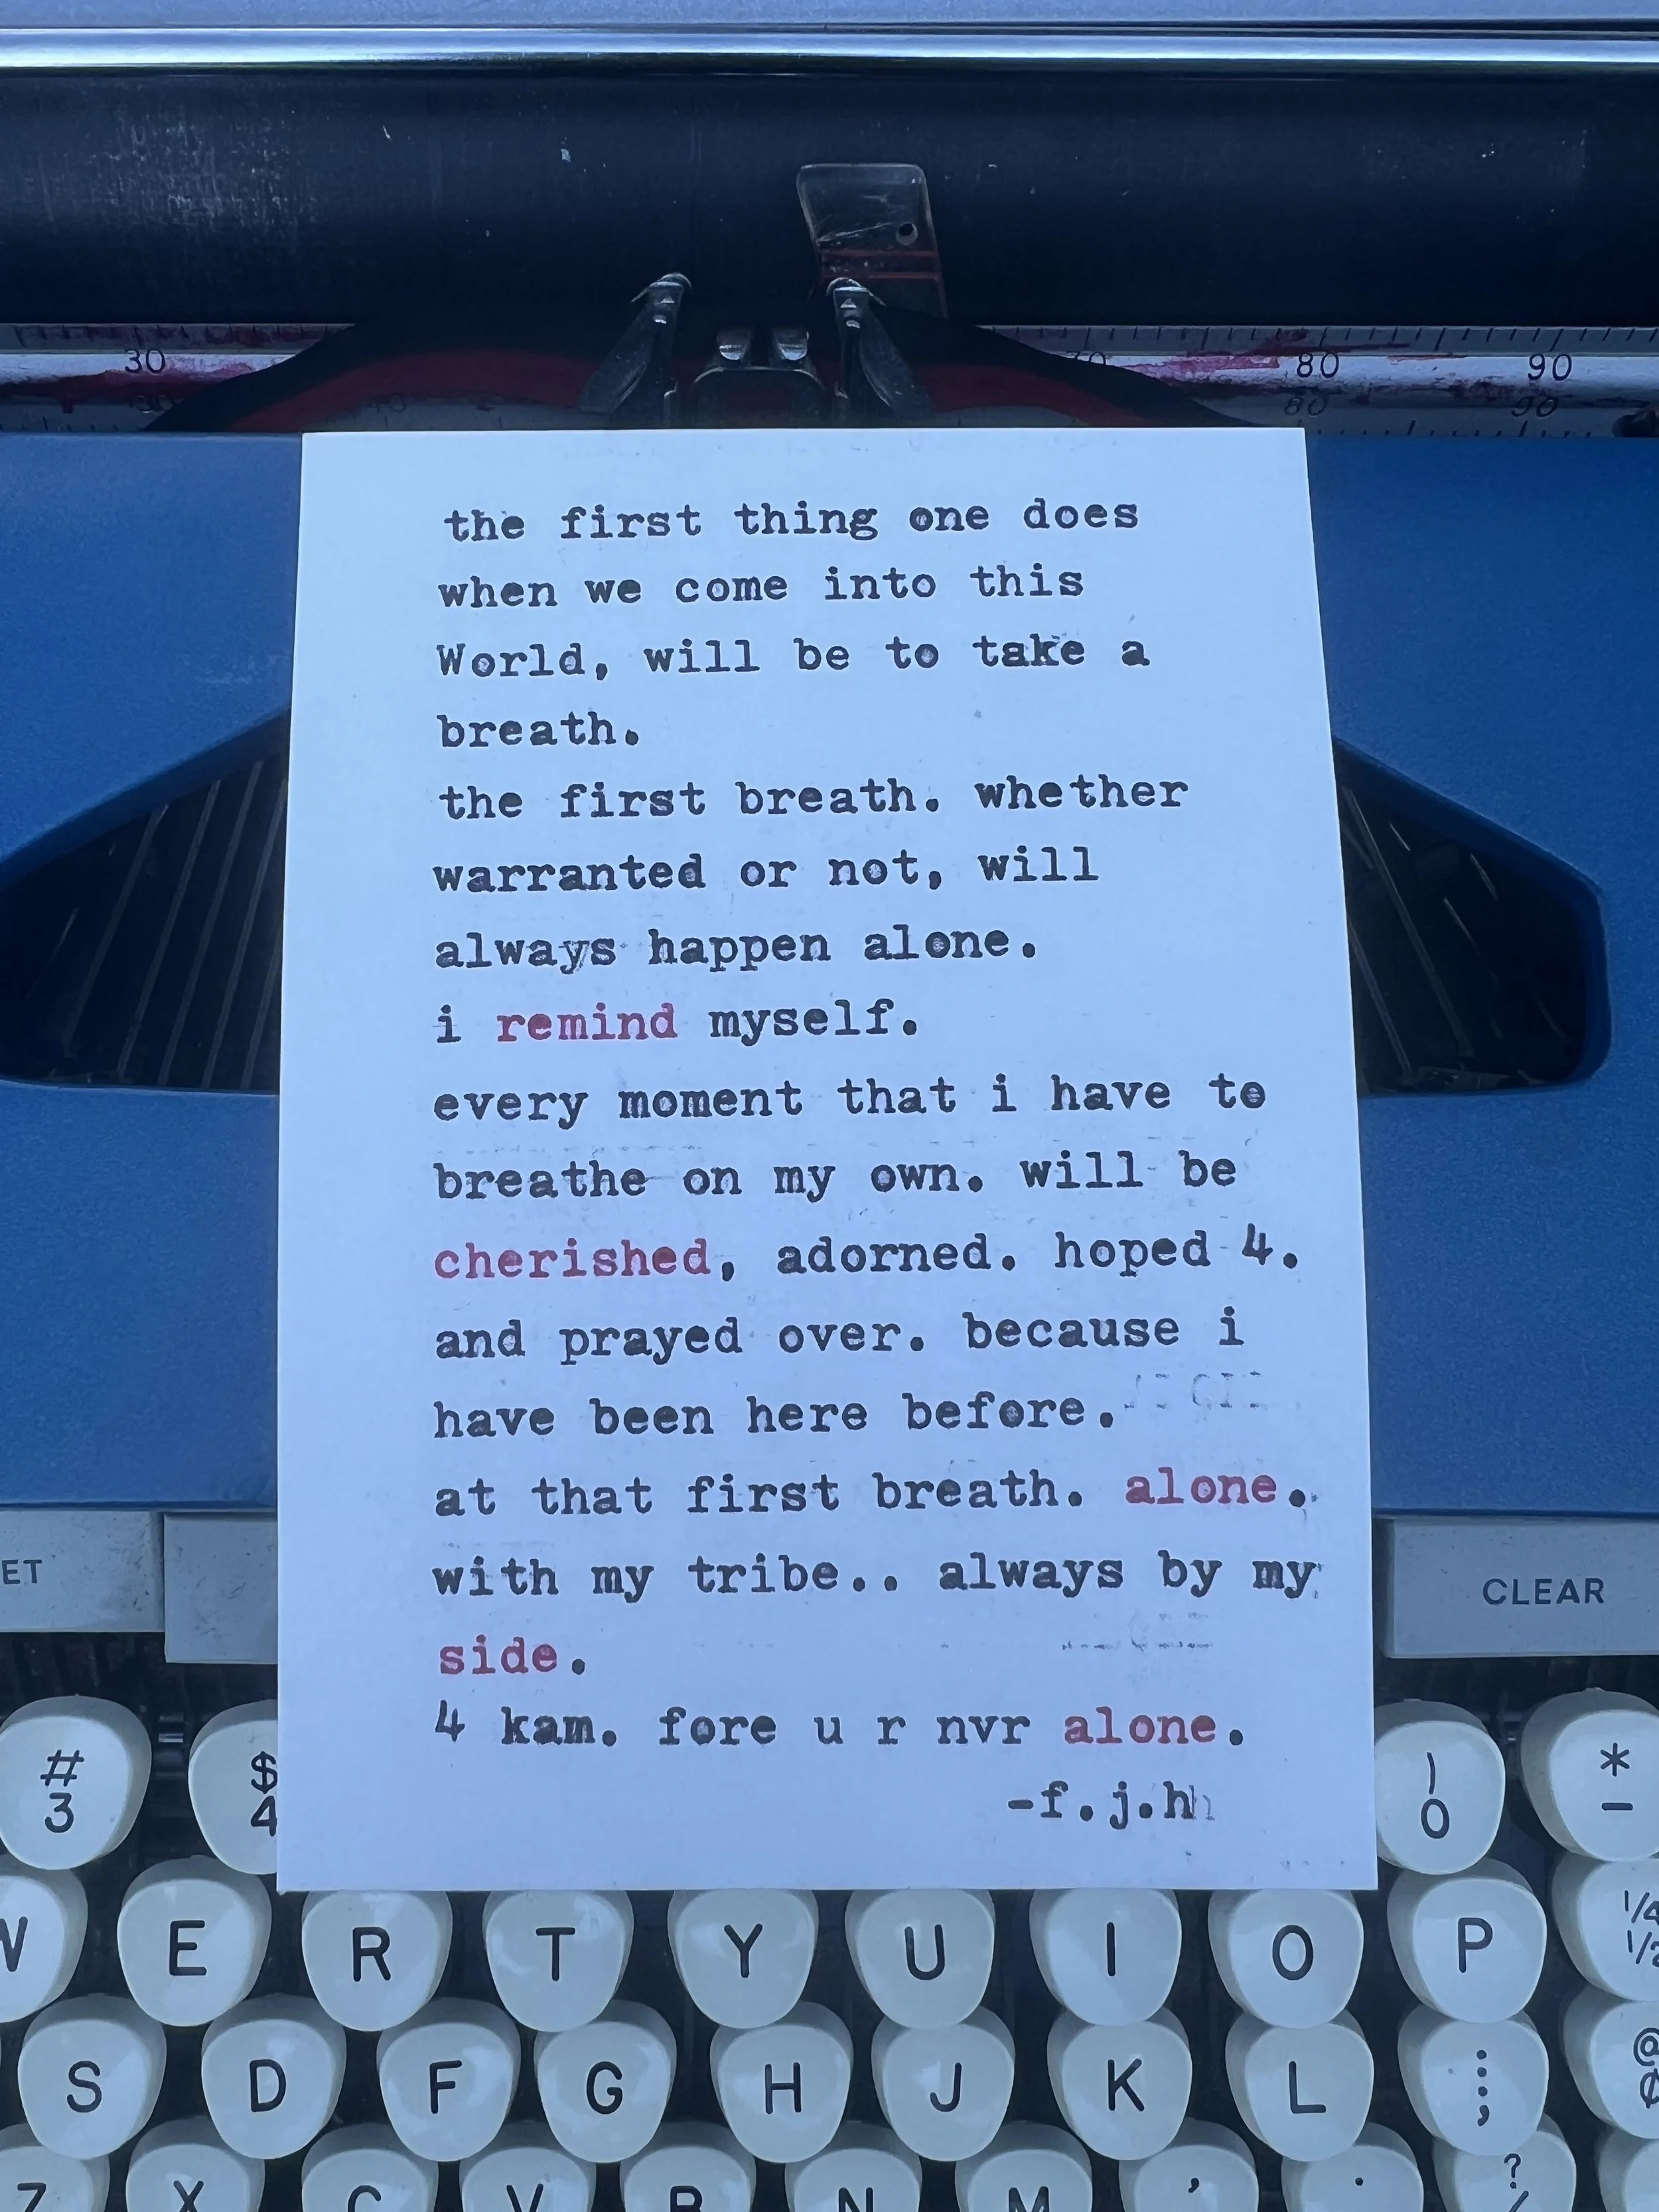 30 70 80 90
30 40 80 90
the first thing one does
when we come into this
World, will be to take a
breath.
the first breath. whether
warranted or not, will
always happen alone.
i remind myself.
every moment that i have to
breathe on my own. will be
cherished, adorned. hoped 4.
and prayed over. because i
have been here before.
at that first breath. alone.
with my tribe.. always by my
side.
4 kam. fore u r nvr alone.
-f.j.h
ET CLEAR
# $ ) *
3 4 0 -
W E R T Y U I O P 1/4
1/2
S D F G H J K L : ; @
¢
Z X C V B N M , . ?
/